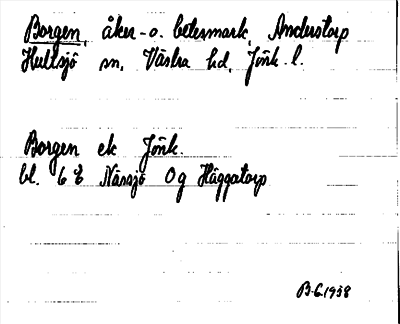 Borgen, åker- o. betesmark, Anderstorp
Hultsjö sn, Västra hd, Jönk. l.
Borgen ek Jönk.
bl. 6 E Nässjö 0 g Häggatorp
B.G. 1938